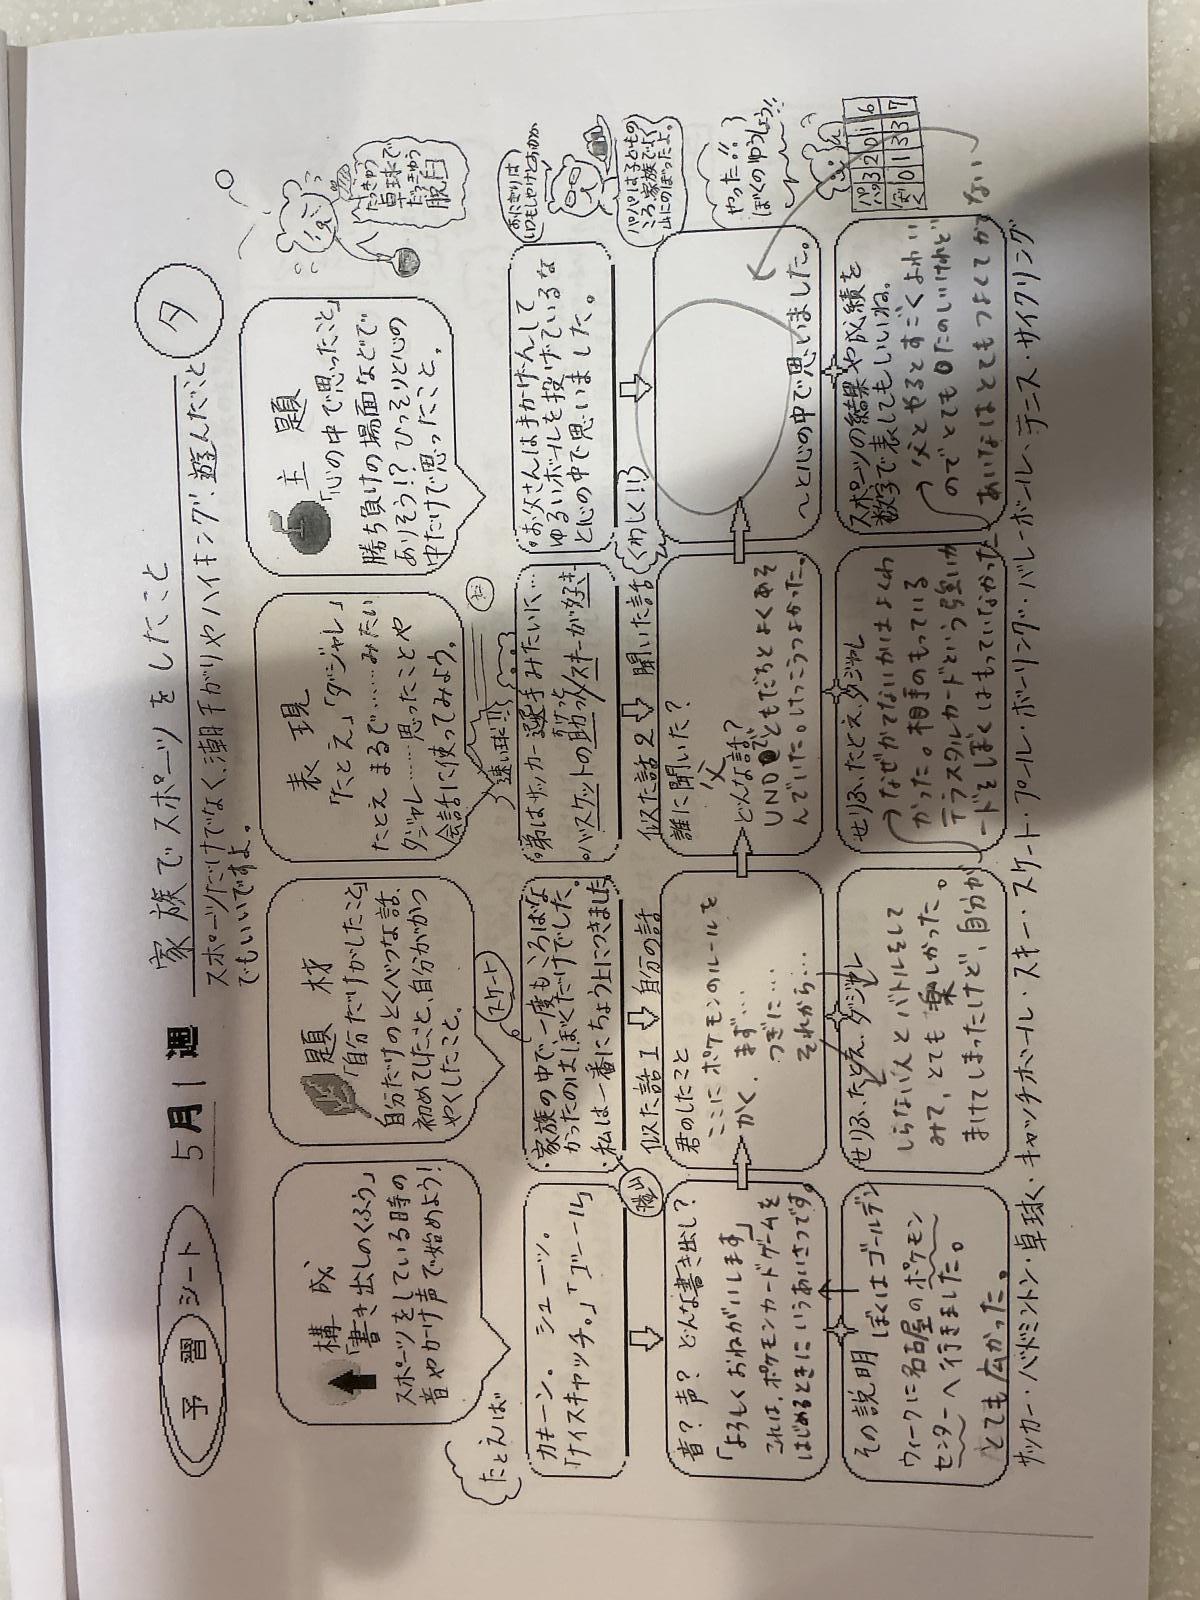 予習シート 5月1週
家族でスポーツをしたこと
タ
スポーツだけでなく、潮干がりやハイキング、遊んだこと
でもいいですよ。
構成
「書き出しのくふう」
スポーツをしている時の
音やかけ声で始めよう!
題材
「自分だけがしたこと」
自分だけのとくべつな話、
初めてしたこと、自分がかつ
やくしたこと。
表現
「たとえ」「ダジャレ」
たとえ まるで……みたい
ダジャレ……思ったことや
会話に使ってみよう。
主題
「心の中で思ったこと」
勝ち負けの場面などで
ありそう!? ひっそりと心の
中だけで思ったこと。
たっきゅう
卓球で
だっきゅう
脱臼
たとえば
カキーン。シューッ。
「ナイスキャッチ。」「ゴール」
スケート
・家族の中で一度もころばな
かったのはぼくだけでした。
・私は一番にちょう上につきました
登山
速い球!!
。弟はサッカー選手みたいに…
。バスケットの助っ人/スキーが好き
。お父さんは手かげんして
ゆるいボールを投げているな
と心の中で思いました。
おにぎりは
パパは子どもの
ころ、家族でよく
山にのぼったよ。
音?声? どんな書き出し?
「よろしくおねがいします」
これは、ポケモンカードゲームを
はじめるときにいうあいさつです。
似た話1 自分の話
君のしたこと
ここにポケモンのルールを
かく。まず…
つぎに…
それから…
似た話2 聞いた話
くわしく!!
誰に聞いた?
父
どんな話?
UNOでともだちとよくあそ
んでいた。けっこうつよかった。
~と心の中で思いました。
やった!!
ぼくのゆうしょう!!
パパ 3 2 0 1 6
ぼく 0 1 3 3 7
その説明 ぼくはゴールデン
ウィークに名古屋のポケモン
センターへ行きました。
とても広かった。
せりふ、たとえ、ダジャレ
しらない人とバトルをして
みて、とても楽しかった。
まけてしまったけど、自分が
せりふ、たとえ、ダジャレ
なぜかてないかはよくわ
かった。相手のもっている
テラスタルカードという強いカ
ードをぼくはもっていなかった
スポーツの結果や成績を
数字で表してもいいね。
父とやるとすごくよわい
のでとてもたのしいけれど
あいなはとてもつよくてかて
ない
サッカー・バドミントン・卓球・キャッチボール・スキー・スケート・プール・ボーリング・バレーボール・テニス・サイクリング